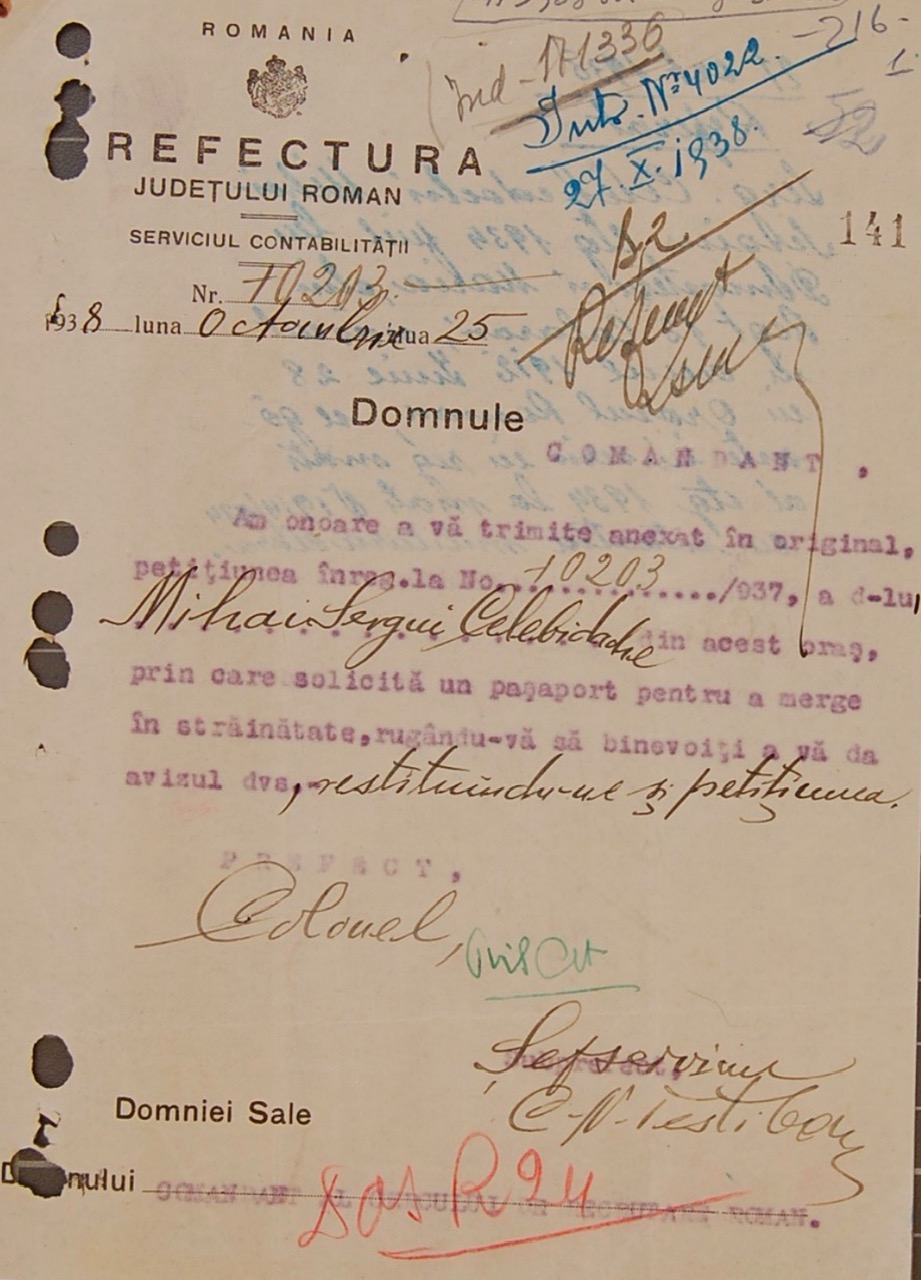 ROMANIA
Ind - N 1336
-216-
1
Intr. Nº 4022.
27.X.1938.
52
REFECTURA
JUDEȚULUI ROMAN
SERVICIUL CONTABILITĂȚII
141
Nr. 10203.
1938 luna Octombrie ziua 25
Domnule
COMANDANT,
Am onoare a vă trimite anexat în original,
petițiunea înreg.la No. 10203/937, a d-lui
Mihai Sergui Celebidache din acest oraș,
prin care solicită un pașaport pentru a merge
în străinătate, rugându-vă să binevoiți a vă da
avizul dvs, restituindu-ne și petițiunea.
PREFECT,
Colonel,
Subprefect,
Domniei Sale
Domnului COMANDANT AL CERCULUI DE RECRUTARE ROMAN.
DOS R 94